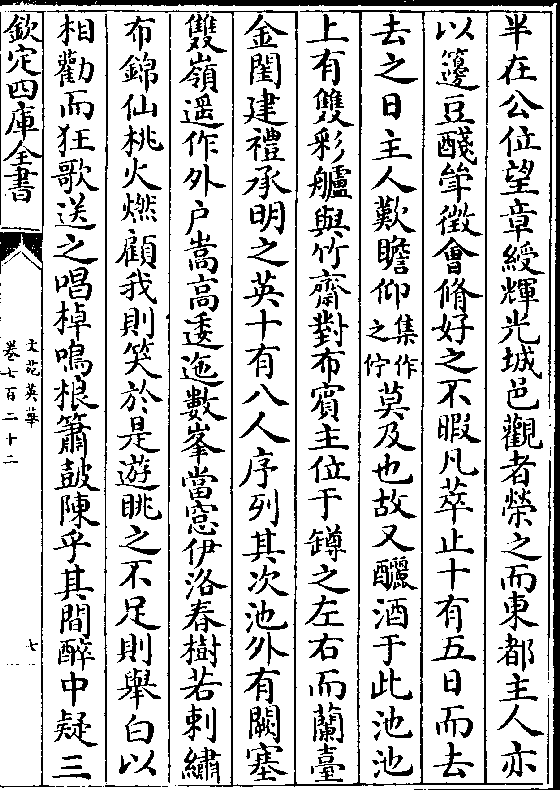 半在公位望章綬輝光城邑觀者榮之而東都主人亦
以籩豆醆斚徵會脩好之不暇凡萃止十有五日而去
去之日主人歎瞻仰集作之佇莫及也故又釃酒于此池池
上有雙彩艫與竹齋對布賓主位于罇之左右而蘭臺
金閨建禮承明之英十有八人序列其次池外有闕塞
雙嶺遥作外户嵩高逶迤數峯當窓伊洛春樹若刺繡
布錦仙桃火燃顧我則笑於是遊眺之不足則舉白以
相勸而狂歌送之唱棹鳴榔簫鼓陳乎其間醉中疑三
欽定四庫全書
文苑英華
卷七百二十二
七